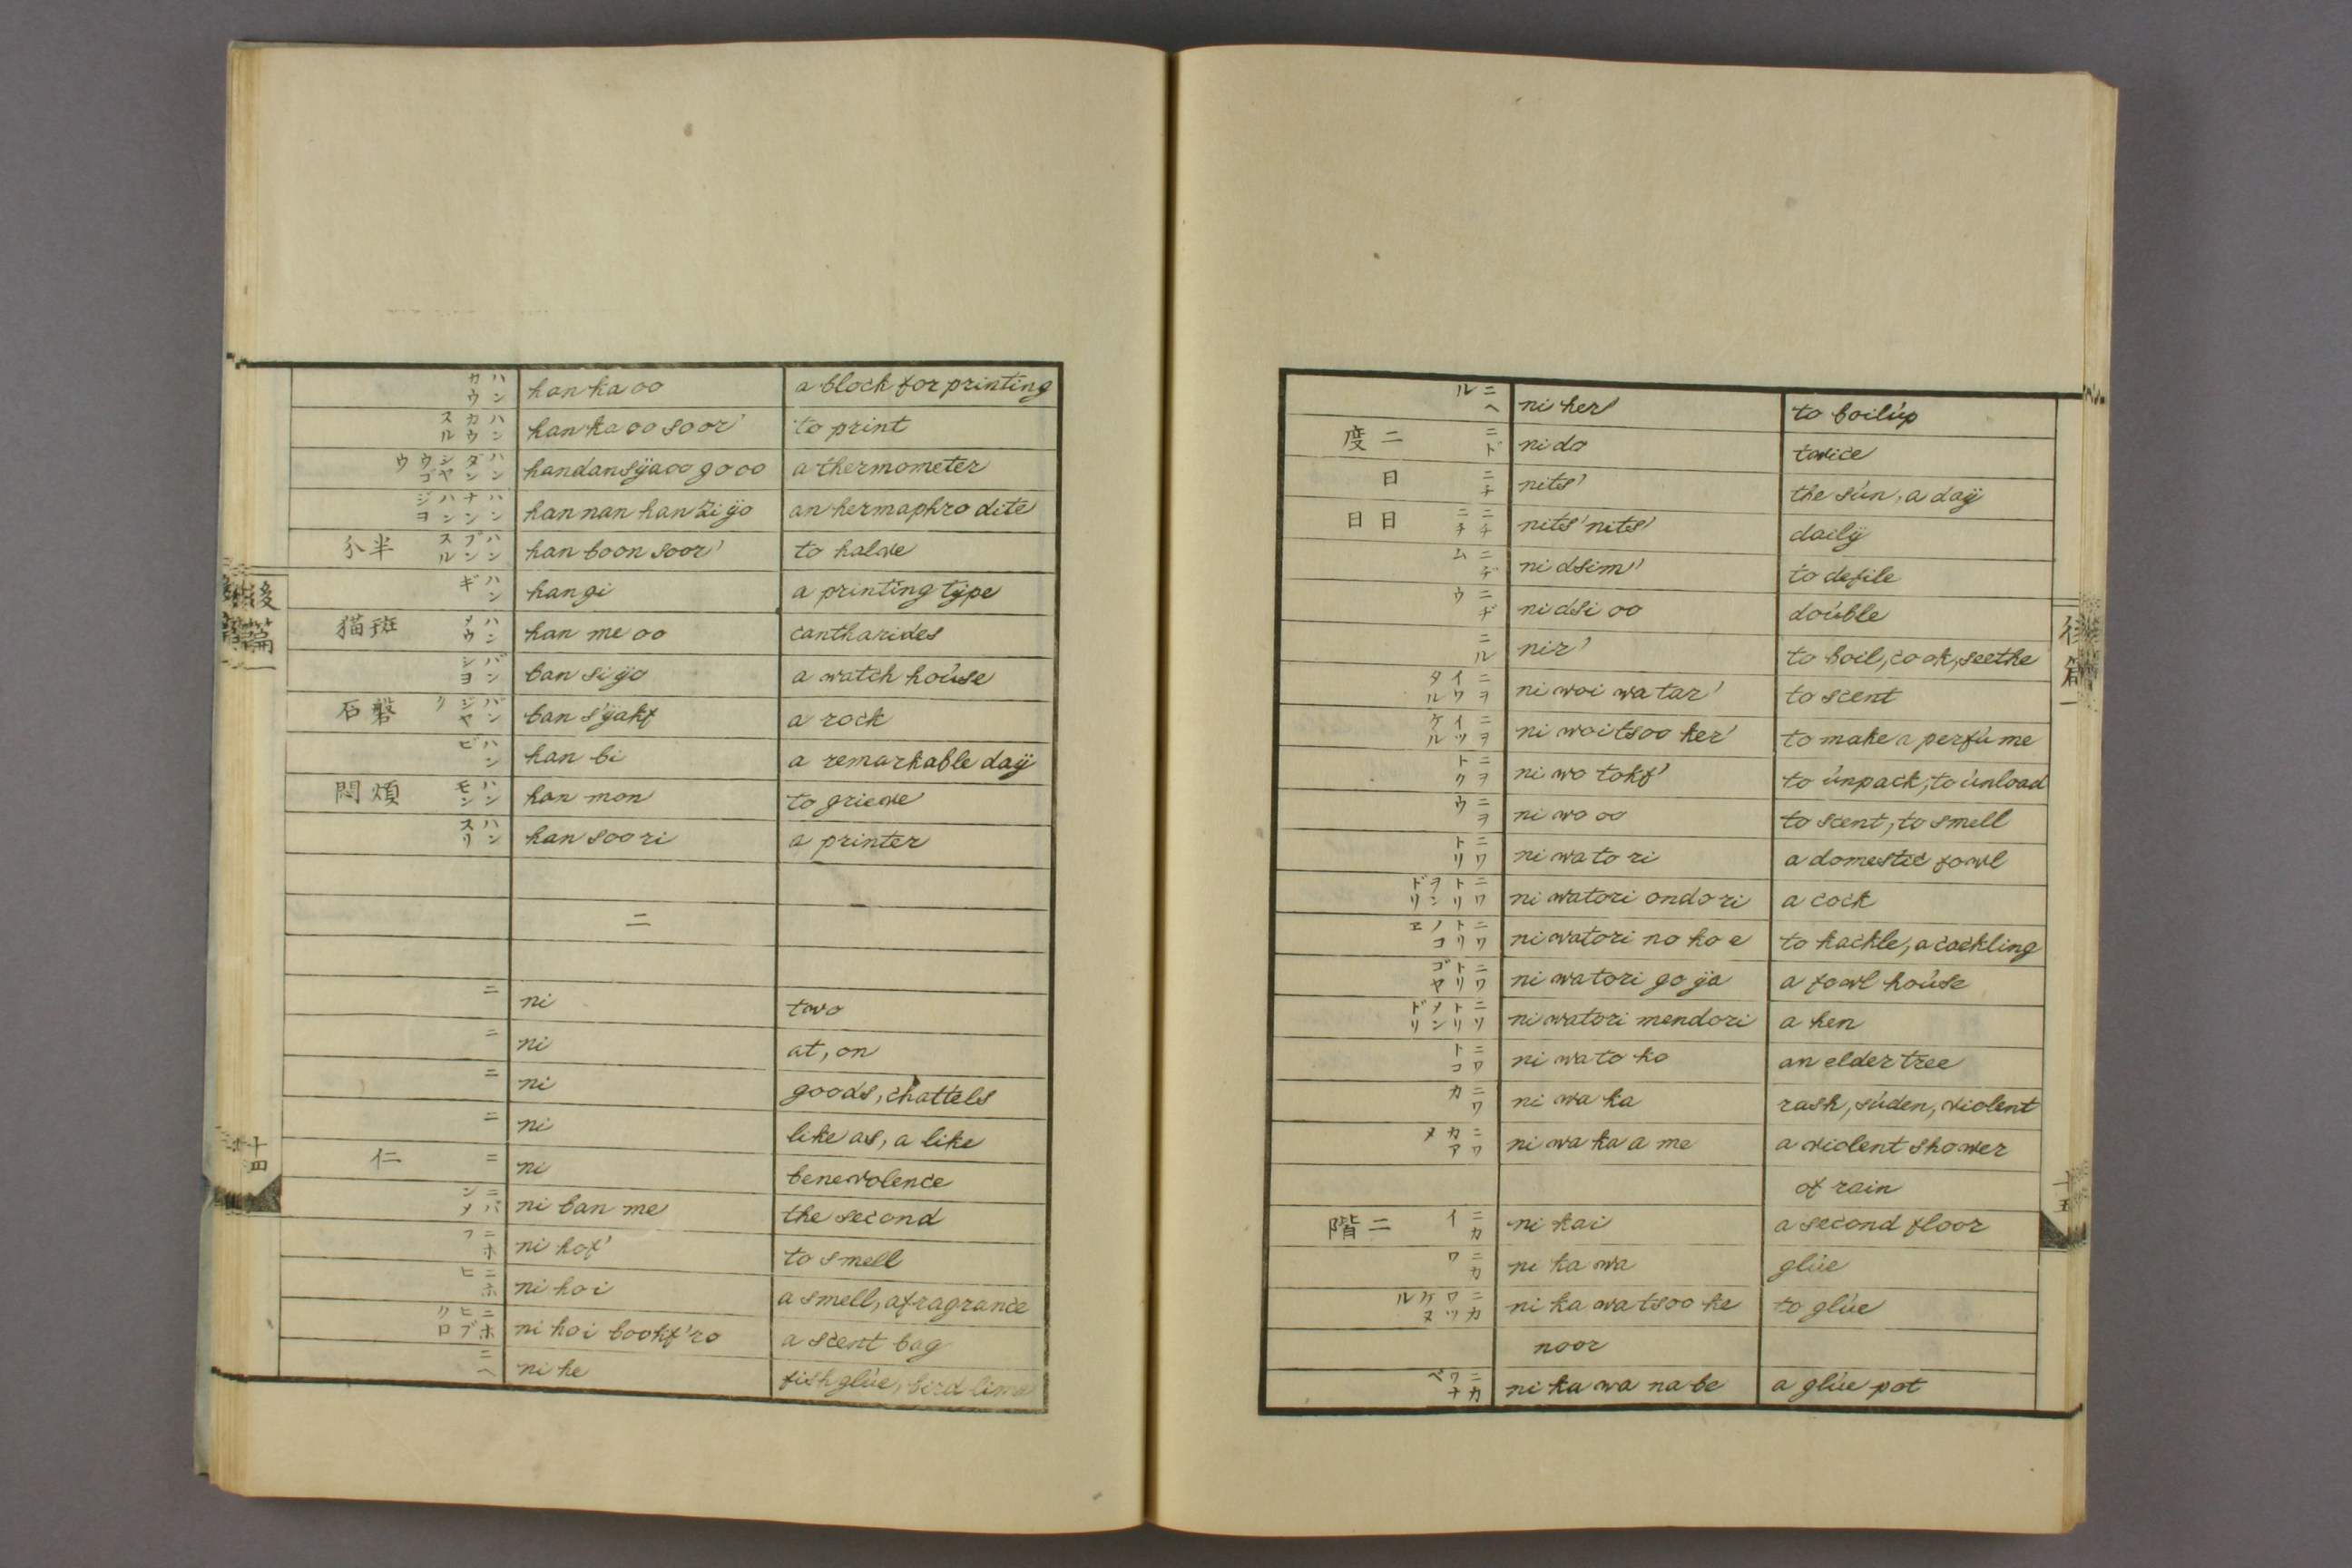 ハンカウ han ka oo a block for printing
ハンカウスル han ka oo soor' to print
ハンダンシヤウゴウ handansÿaoo go oo a thermometer
ハンナンハンジヨ han nan han zi ÿo an hermaphro dite
分半 ハンブンスル han boon soor' to halve
ハンギ han gi a printing type
猫斑 ハンメウ han me oo cantharides
バンシヨ ban si ÿo a watch house
石磐 バンジヤク ban s'ÿakf a rock
ハンビ han bi a remarkable daÿ
悶煩 ハンモン han mon to grieve
ハンスリ han soo ri a printer
ニ
ニ ni two
ニ ni at, on
ニ ni goods, chattels
ニ ni like as, a like
仁 ニ ni benevolence
ニバンメ ni ban me the second
ニホフ ni hof' to smell
ニホヒ ni ho i a smell, a fragrance
ニホヒブクロ ni ho i bookf'ro a scent bag
ニヘ ni he fish glúe, bird lime
後篇一
十四
ニヘル ni her' to boil úp
度二 ニド ni do twice
日 ニチ nits' the sún, a daÿ
日日 ニチニチ nits' nits' dailÿ
ニヂム ni dsim' to defile
ニヂウ ni dsi oo doúble
ニル nir' to boil, cook, seethe
ニヲイワタル ni woi wa tar' to scent
ニヲイツケル ni woi tsoo ker' to make a perfúme
ニヲトク ni wo tokf' to únpack, to únload
ニヲウ ni wo oo to scent, to smell
ニワトリ ni wa to ri a domestic fowl
ニワトリヲンドリ ni watori ondo ri a cock
ニワトリノコヱ ni watori no ko e to kackle, a cackling
ニワトリゴヤ ni watori go ÿa a fowl hoúse
ニワトリメンドリ ni watori mendori a hen
ニワトコ ni wa to ko an elder tree
ニワカ ni wa ka rash, súden, violent
ニワカアメ ni wa ka a me a violent shower
of rain
階二 ニカイ ni kai a second floor
ニカワ ni ka wa glúe
ニカワツケヌル ni ka wa tsoo ke to glúe
noor
ニカワナベ ni ka wa na be a glúe pot
十五